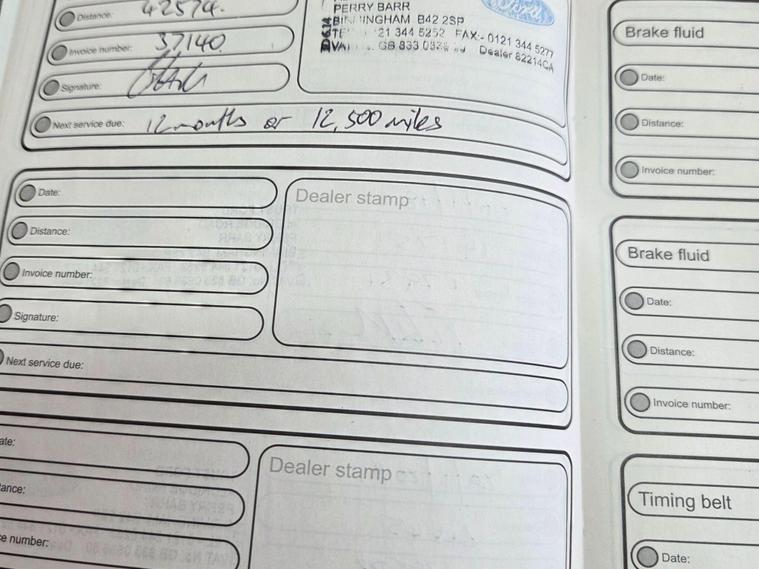 Distance: 42574.
Invoice number: 37140.
Signature:
Next service due: 12 months or 12,500 miles
PERRY BARR
B42 2SP
21 344 5252 FAX:- 0121 344 5277
GB 833 Dealer 82214CA
Ford
Date:
Distance:
Invoice number:
Signature:
Next service due:
Dealer stamp
ate:
ance:
e number:
Dealer stamp
Brake fluid
Date:
Distance:
Invoice number:
Brake fluid
Date:
Distance:
Invoice number:
Timing belt
Date: